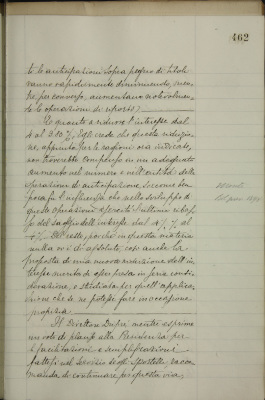 462
te le anticipazioni sopra pegno di titoli
vanno rapidamente diminuendo, men-
tre per converso, aumentano notevolmen-
te le operazioni di riporto.
In quanto a ridurre l'interesse dal
4 al 3.50 %, Egli crede che questa riduzio-
ne, appunto per le ragioni ora indicate,
non troverebbe compenso in un adeguato
aumento nel numero e nell'entità delle
operazioni di anticipazione, siccome ben
poca fu l'influenza che nello sviluppo di
queste operazioni esercitò l'ultimo ribas-
so del saggio dell'interesse dal
4 %. Del resto, poiché in questa materia
nulla vi è di assoluto, così anche la
proposta di una nuova riduzione dell'in-
teresse merita di esser presa in seria consi-
derazione, e studiata per quell'applica-
zione che se ne potesse fare in occasione
propizia.
Il Direttore mentre esprime
un voto di plauso alla Presidenza per
le facilitazioni e semplificazioni
nel servizio degli sportelli, racco-
manda di continuare per questa via,